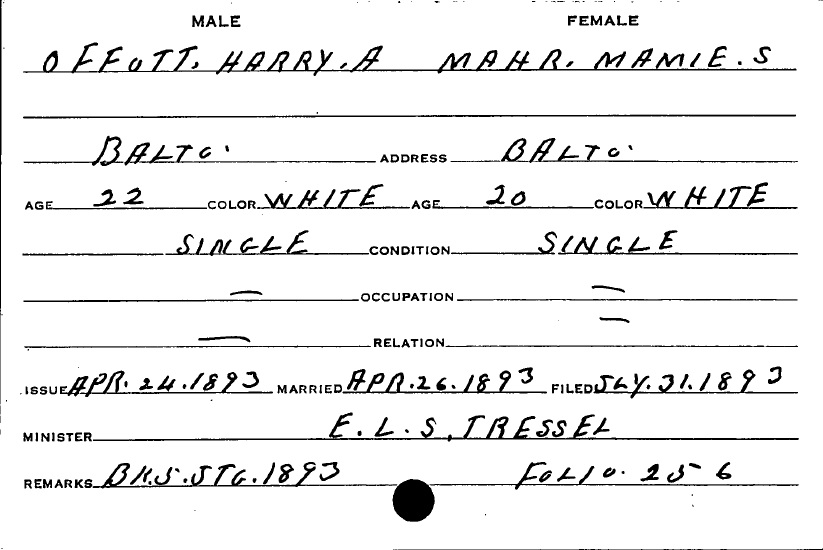 MALE FEMALE
OFFUTT, HARRY. A MAHR. MAMIE. S
BALTO. ADDRESS BALTO.
AGE 22 COLOR WHITE AGE 20 COLOR WHITE
SINGLE CONDITION SINGLE
— OCCUPATION —
— RELATION —
ISSUE APR. 24. 1893 MARRIED APR. 26. 1893 FILED JLY. 31. 1893
MINISTER E. L. S. TRESSEL
REMARKS 1893 FOLIO. 256